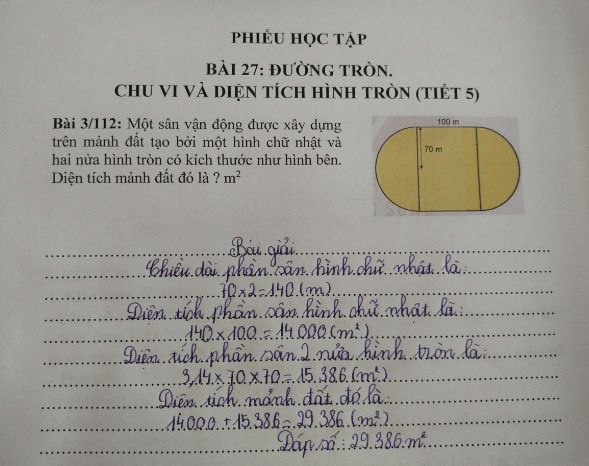 PHIẾU HỌC TẬP
BÀI 27: ĐƯỜNG TRÒN.
CHU VI VÀ DIỆN TÍCH HÌNH TRÒN (TIẾT 5)
Bài 3/112: Một sân vận động được xây dựng
trên mảnh đất tạo bởi một hình chữ nhật và
hai nửa hình tròn có kích thước như hình bên.
Diện tích mảnh đất đó là ? m²
100 m
70 m
Bài giải
Chiều dài phần sân hình chữ nhật là:
70 x 2 = 140 (m)
Diện tích phần sân hình chữ nhật là:
140 x 100 = 14 000 (m²)
Diện tích phần sân 2 nửa hình tròn là:
3,14 x 70 x 70 = 15 386 (m²)
Diện tích mảnh đất đó là:
14 000 + 15 386 = 29 386 (m²)
Đáp số: 29 386 m²